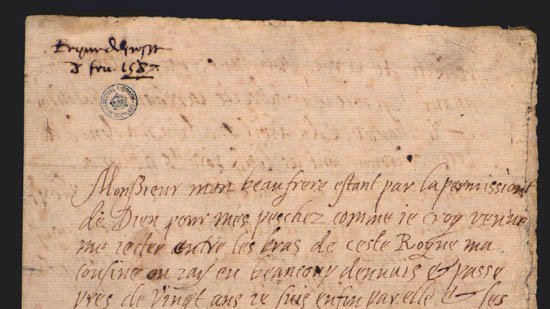 Royne descosse
8 feu. 1587
Monsieur mon beaufrere estant par la permission
de Dieu pour mes peschez comme ie croy venue
me iecter entre les bras de ceste Royne ma
cousine ou iay eu beaucoup dennuis & passe
pres de vingt ans ie suis enfin par elle & ses